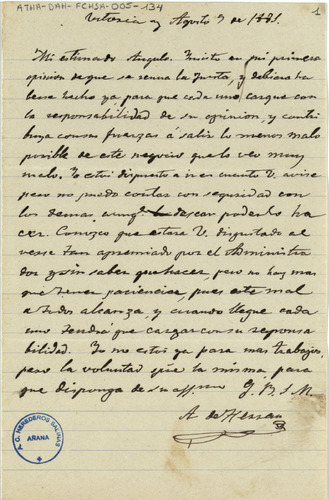 ATHA-DAH-FCHSA-005-134
1
Vitoria y Agosto 7 de 1881.
Mi estimado Angulo. Insisto en mi primera
opinion de que se reuna la Junta, y debiera ha
berse hecho ya para que cada uno cargue con
la responsabilidad de su opinion, y contri
buya con sus fuerzas á salir lo menos malo
posible de este negocio que lo veo muy
malo. Yo estoi dispuesto a ir en cuanto V. avise
pero no puedo contar con seguridad con
los demas, aunq. desear poderlo ha
cer. Conozco que estara V. disgustado al
verse tan apremiado por el Administra
dor y sin saber que hacer, pero no hay mas
que tener paciencia, pues este mal
a todos alcanza, y cuando llegue cada
uno tendra que cargar con su responsa
bilidad. Yo no estoy ya para mas trabajos,
pero la voluntad que la misma para
que disponga de su aff.mo Q.B.S.M.
A. de Herran
A.C. HEREDEROS SALINAS
ARAÑA